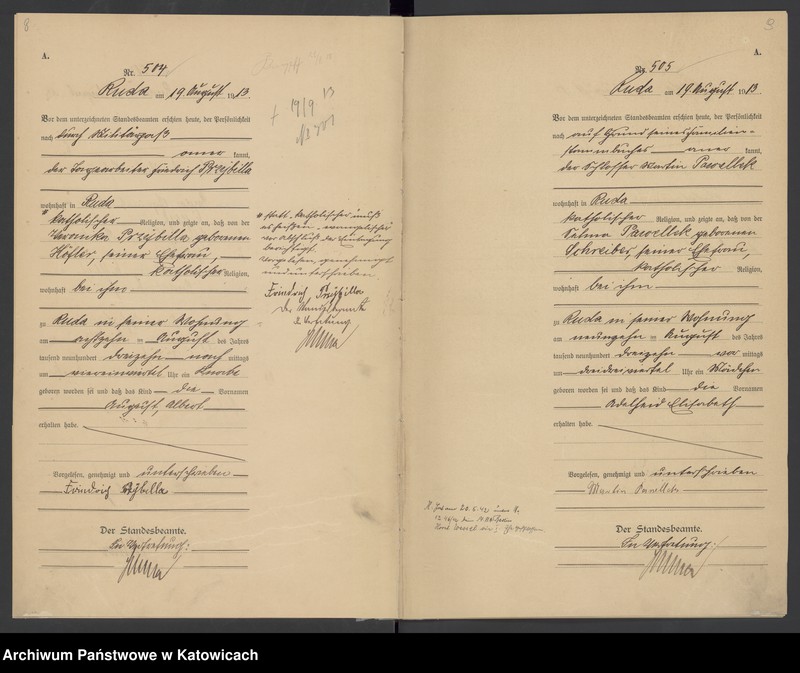 8
A.
Nr. 504
Ruda am 19 August 1913.
Vor dem unterzeichneten Standesbeamten erschien heute, der Persönlichkeit
nach durch Militärpaß
aner kannt,
der Friedrich Przybilla
wohnhaft in Ruda
katholischer Religion, und zeigte an, daß von der
Veronika Przybilla geborenen
Höfler, seiner Ehefrau,
katholischer Religion,
wohnhaft bei ihm
zu Ruda in seiner Wohnung
am achtzehn ten August des Jahres
tausend neunhundert dreizehn nach mittags
um viereinviertel Uhr ein Knabe
geboren worden sei und daß das Kind die Vornamen
August Albert
erhalten habe.
Vorgelesen, genehmigt und unterschrieben
Friedrich
Der Standesbeamte.
In Vertretung:
† 19/9 13
statt katholischer muß
es heißen evangelischer
vor Abschluß der Eintragung
berichtigt.
Vorgelesen, genehmigt
und unterschrieben.
Friedrich Przybilla
Der Standesbeamte
In Vertretung
9
A.
Nr. 505
Ruda am 19 August 1913.
Vor dem unterzeichneten Standesbeamten erschien heute, der Persönlichkeit
nach auf Grund seines Familien-
stammbuches aner kannt,
der Schlosser Martin Pawellek
wohnhaft in Ruda
katholischer Religion, und zeigte an, daß von der
Selma Pawellek geborenen
Schreiber, seiner Ehefrau,
katholischer Religion,
wohnhaft bei ihm
zu Ruda in seiner Wohnung
am neunzehn ten August des Jahres
tausend neunhundert dreizehn vor mittags
um dreidreiviertel Uhr ein Mädchen
geboren worden sei und daß das Kind die Vornamen
Adelheid Elisabeth
erhalten habe.
Vorgelesen, genehmigt und unterschrieben
Martin Pawellek
Der Standesbeamte.
In Vertretung:
Archiwum Państwowe w Katowicach